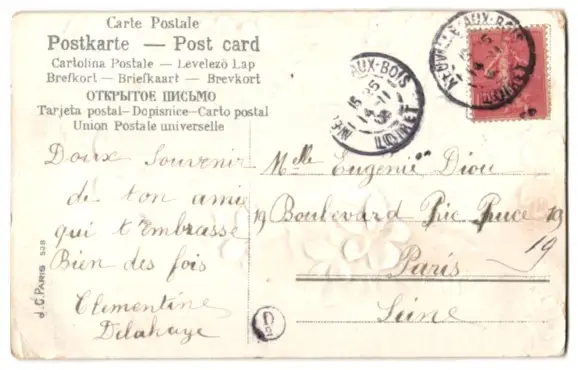 Carte Postale
Postkarte — Post card
Cartolina Postale — Levelező Lap
Brefkort — Briefkaart — Brevkort
ОТКРЫТОЕ ПИСЬМО
Tarjeta postal—Dopisnice—Carto postal
Union Postale universelle
Doux Souvenir
de ton amie
qui t'embrasse
Bien des fois
Clementine
Delahaye
J.C. PARIS
NEUVILLE-AUX-BOIS
LOIRET
AUX-BOIS
LOIRET
Melle Eugenie Diou
19 Boulevard 19
19
Paris
Seine